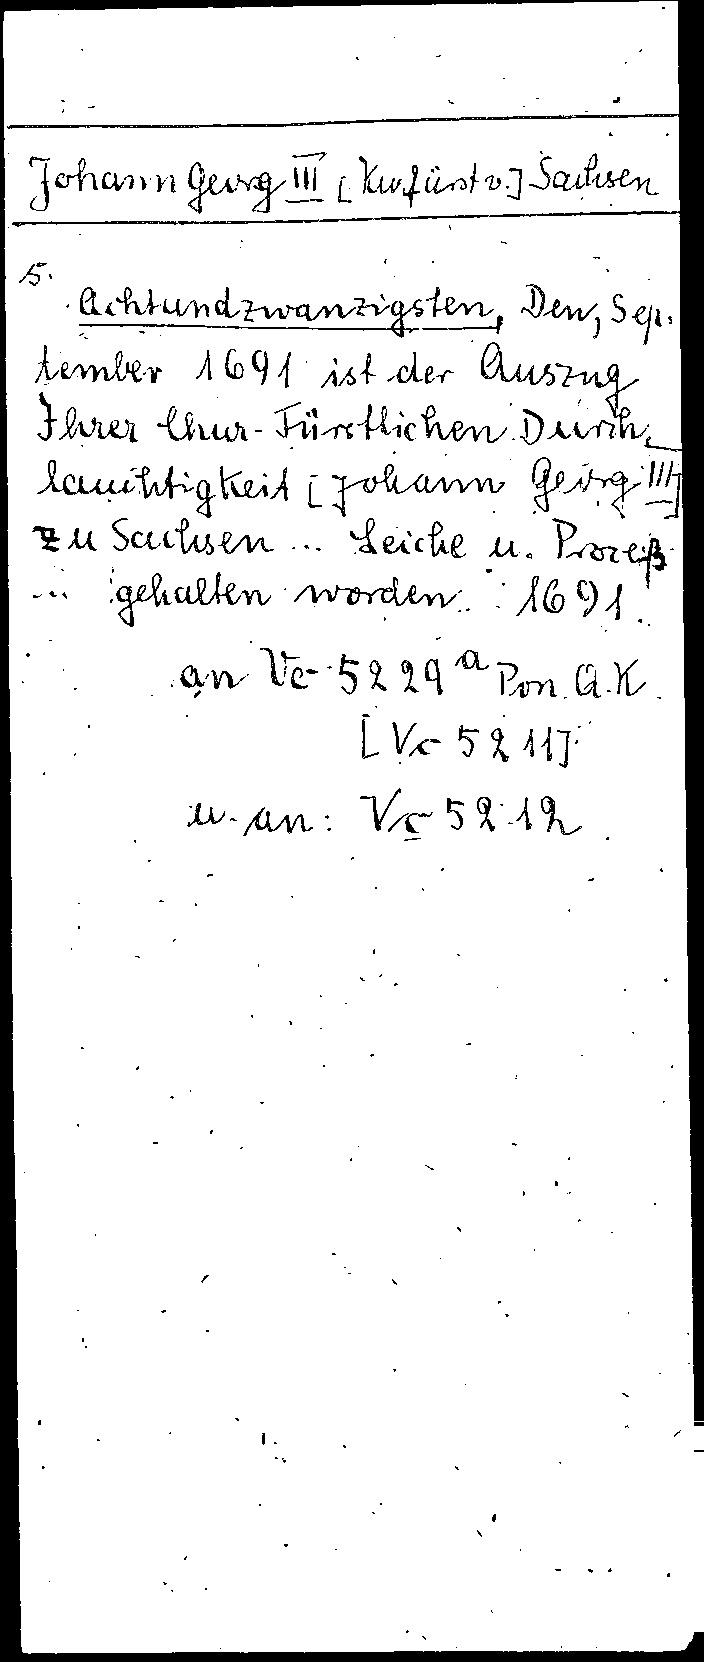 Johann Georg III [Kurfürst v.] Sachsen
5.
Achtundzwanzigsten, Den, Sep-
tember 1691 ist der Auszug
Ihrer Chur-Fürstlichen Durch-
lauchtigkeit [Johann Georg III]
zu Sachsen ... Leiche u. Prozeß
... gehalten worden. 1691.
an Vc 5229a Pon. Q.K.
[Vc 5211]
u. an: Vc 5212